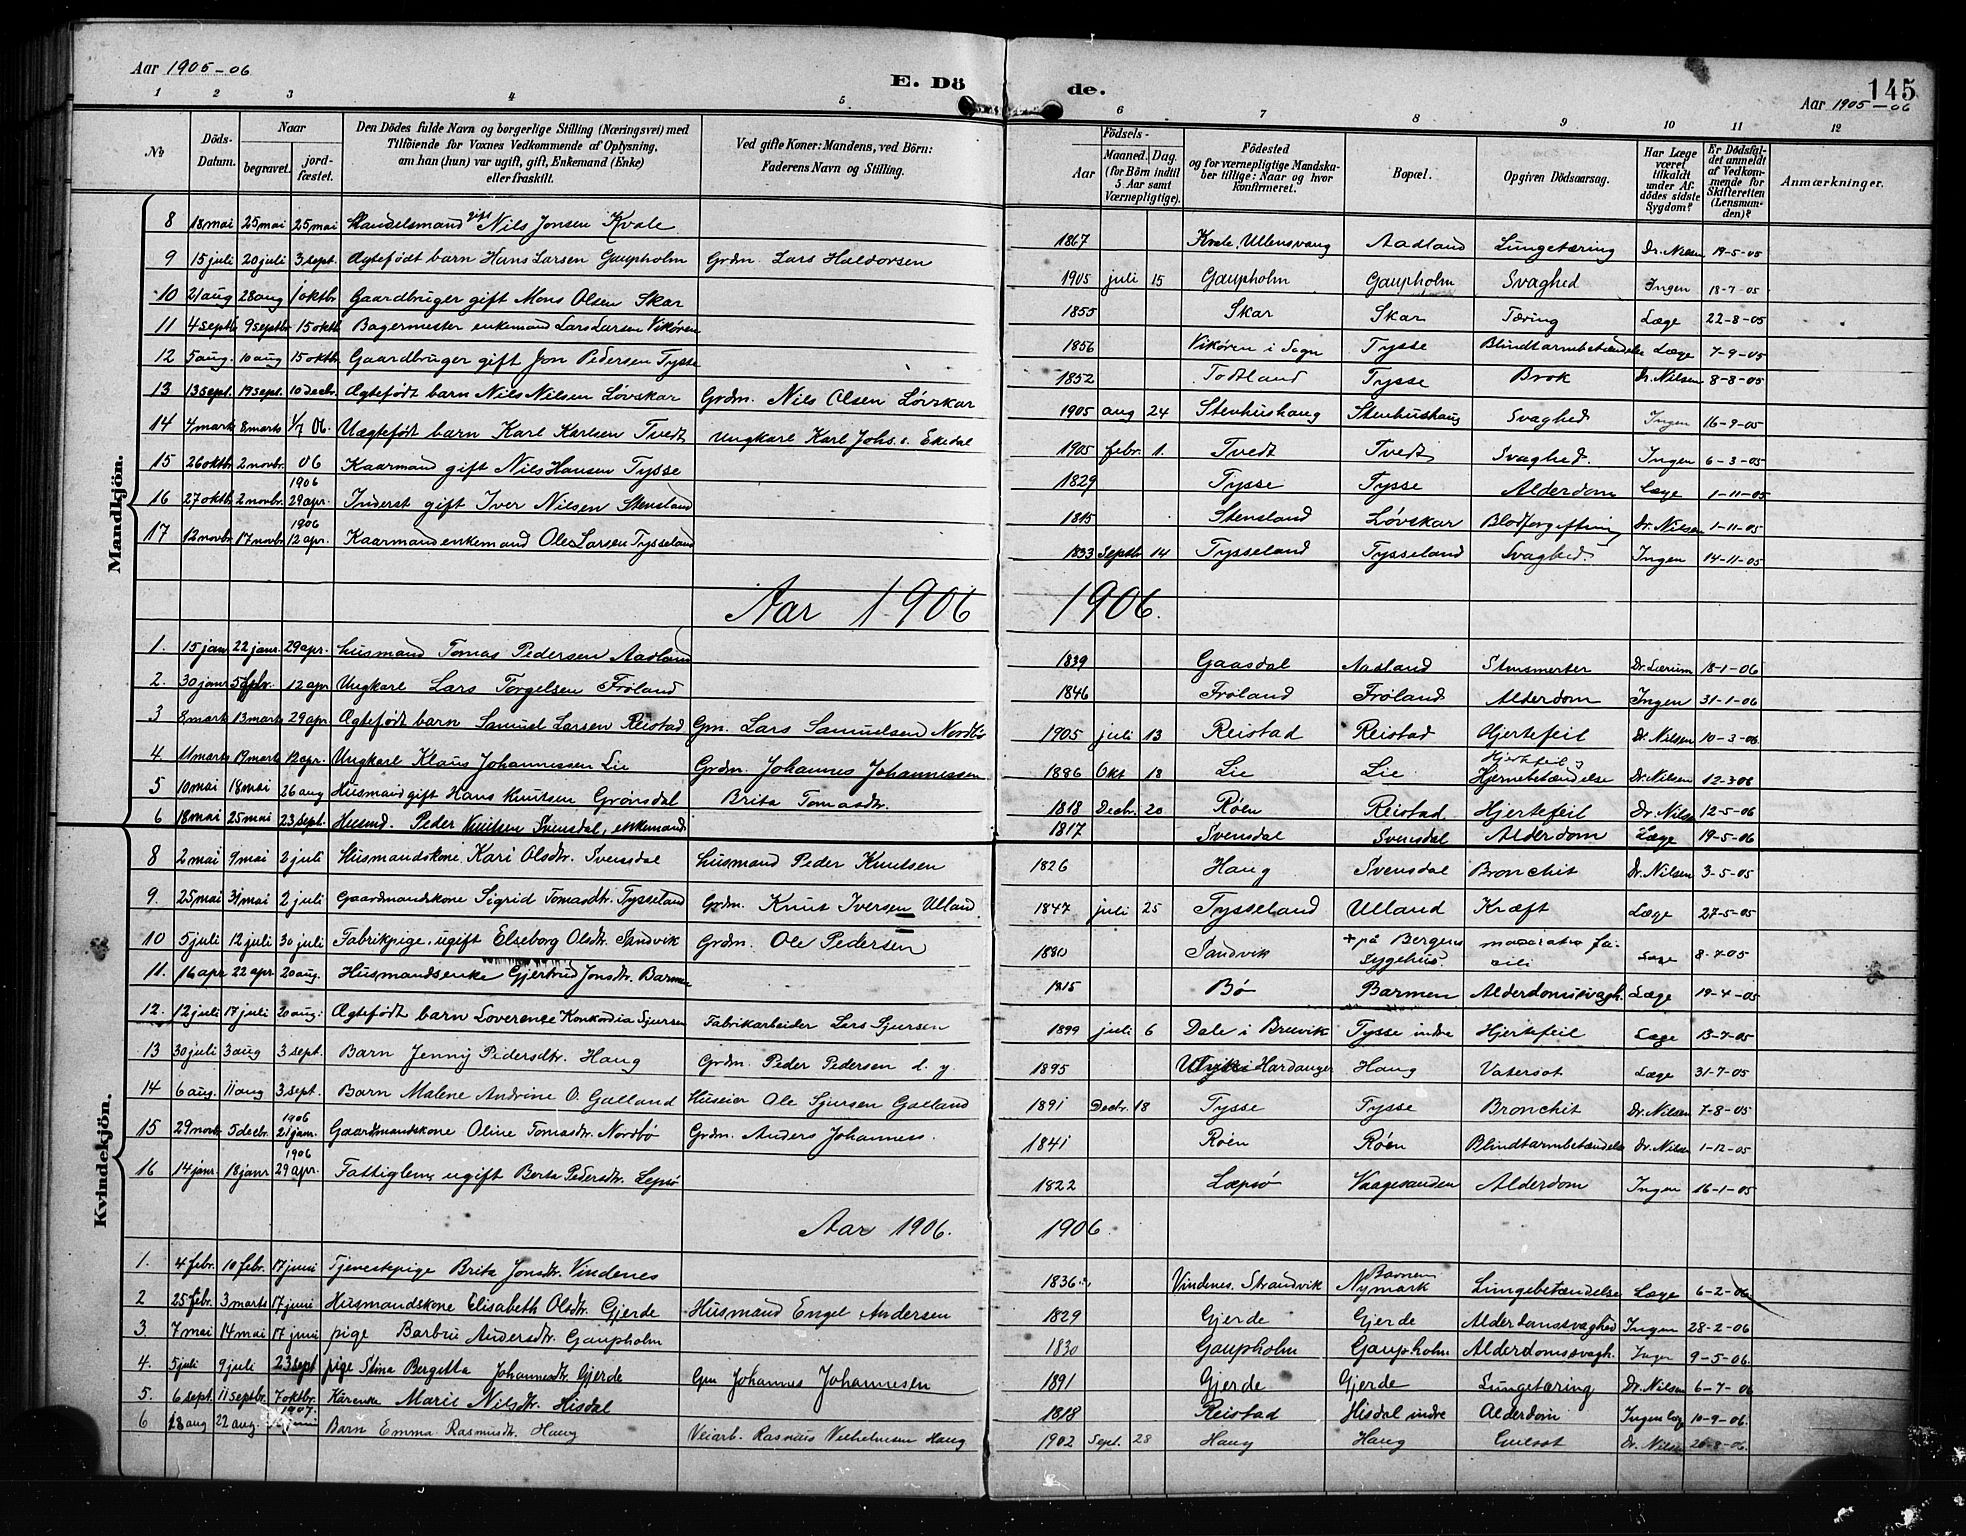 Aar 1905-06
E. Döde.
145
Aar 1905-06
1 2 3 4 5 6 7 8 9 10 11 12
No
Döds-Datum.
Naar
begravet.
jordfæstet.
Den Dödes fulde Navn og borgerlige Stilling (Næringsvei) med
Tilföiende for Voxnes Vedkommende af Oplysning,
om han (hun) var ugift, gift, Enkemand (Enke)
eller fraskilt.
Ved gifte Koner: Mandens, ved Börn:
Faderens Navn og Stilling.
Födsels-
Aar
Maaned. Dag.
(for Börn indtil
5 Aar samt
Værnepligtige).
Födested
og for værnepligtige Mandska-
ber tillige: Naar og hvor
konfirmeret.
Bopæl.
Opgiven Dödsaarsag.
Har Læge
været
tilkaldt
under Af-
dödes sidste
Sygdom?
Er Dödsfal-
det anmeldt
af Vedkom-
mende for
Skifteretten
(Lensman-
den)?
Anmærkninger.
Mandkjön.
8 18 mai 25 mai 25 mai Handelsmand gift Nils Jonsen Kvale 1867 Kvale, Ullensvang Aadland Lungetæring Dr. Nilsen 19-5-05
9 15 juli 20 juli 3 sept. Ægtefödt barn Hans Larsen Gaupholm Grdm. Lars Haldorsen 1905 juli 15 Gaupholm Gaupholm Svaghed Ingen 18-7-05
10 21 aug 28 aug 1 oktbr Gaardbruger gift Mons Olsen Skar 1855 Skar Skar Tæring Læge 22-8-05
11 4 septbr 9 septbr 15 oktb Bagermester enkemand Lars Larsen Vikören 1856 Vikören i Sogn Tysse Blindtarmbetændelse Læge 7-9-05
12 5 aug. 10 aug 15 oktbr Gaardbruger gift Jon Pedersen Tysse 1852 Todtland Tysse Brok Dr. Nilsen 8-8-05
13 13 sept. 19 sept. 10 decbr Ægtefödt barn Nils Nilsen Lövskar Grdm. Nils Olsen Lövskar 1905 aug 24 Stenhushaug Stenhushaug Svaghed Ingen 16-9-05
14 4 mark 8 marts 1/7 06. Uægtefödt barn Karl Karlsen Tvedt Ungkarl Karl Johs. Ekedal 1905 febr. 1. Tvedt Tvedt Svaghed. Ingen 6-3-05
15 26 oktbr 2 novbr. 06 Kaarmand gift Nils Hansen Tysse 1829 Tysse Tysse Alderdom Læge 1-11-05
16 27 oktbr 2 novbr. 1906 29 apr. Inderst gift Iver Nilsen Stensland 1815 Stensland Lövskar Blodforgiftning Dr. Nilsen 1-11-05
17 12 novbr. 17 novbr 1906 12 apr. Kaarmand enkemand Ole Larsen Tysseland 1833 Septbr 14 Tysseland Tysseland Svaghed. Ingen 14-11-05
Aar 1906 1906.
1. 15 jan 22 janr. 29 apr. Husmand Tomas Pedersen Aadland 1839 Gaasdal Aadland Stensmerter Dr. Lærum 18-1-06
2. 30 janr 5 febr. 12 apr Ungkarl Lars Torgelsen Fröland 1846 Fröland Fröland Alderdom Ingen 31-1-06
3 8 mark 13 marts 29 apr. Ægtefödt barn Samuel Larsen Reistad Gm. Lars Samuelsen Nordbö 1905 juli 13 Reistad Reistad Hjertefeil Dr. Nilsen 10-3-06
4. 11 marts 19 mark 12 apr. Ungkarl Klaus Johannessen Lie Grdm. Johannes Johannessen 1886 Okt 18 Lie Lie Hjertfeil, Hjernebetændelse Dr. Nilsen 12-3-06
5 10 mai 18 mai 26 aug Husmand gift Hans Knutsen Grönsdal Brita Tomasdtr. 1818 Decbr. 20 Röen Reistad Hjertefeil Dr. Nilsen 12-5-06
6 18 mai 25 mai 23 sept. Husmd. Peder Knutsen Svensdal, enkemand. 1817 Svensdal Svensdal Alderdom Læge 19-5-06
Kvindekjön.
8 2 mai 9 mai 2 juli Husmandskone Kari Olsdtr. Svensdal Husmand Peder Knutsen 1826 Haug Svensdal Bronchit Dr. Nilsen 3-5-05
9. 25 mai 31 mai 2 juli Gaardmandskone Sigrid Tomasdtr. Tysseland Grdm. Knut Iversen Ulland 1847 juli 25 Tysseland Ulland Kræft Læge 27-5-05
10 5 juli 12 juli 30 juli Fabrikpige, ugift Elseborg Olsdtr. Sandvik Grdm. Ole Pedersen 1880 Sandvik + på Bergens Sygehus. Læge 8-7-05
11. 16 apr 22 apr. 20 aug. Husmandsenke Gjertrud Jonsdtr. Barmen 1815 Bö Barmen Alderdomssvagh. Læge 19-4-05
12. 12 juli 17 juli 20 aug. Ægtefödt barn Loverense Konkordia Sjursen Fabrikarbeider Lars Sjursen 1899 juli 6 Dale i Bruvik Tysse indre Hjertefeil Læge 13-7-05
13 30 juli 3 aug 3 sept. Barn Jenny Pedersdtr. Haug Grdm. Peder Pedersen d. y. 1895 Hardanger Haug Vatersot Læge 31-7-05
14 6 aug. 11 aug 3 sept. Barn Malene Andrine O. Galland Huseier Ole Sjursen Galland 1891 Decbr. 18 Tysse Tysse Bronchit Dr. Nilsen 7-8-05
15 29 novbr 5 decbr. 1906 21 janr. Gaardmandskone Oline Tomasdtr. Nordbö Grdm. Anders Johanness. 1841 Röen Röen Blindtarmbetændelse Dr. Nilsen 1-12-05
16 14 janr. 18 janr 1906 29 apr. Fattiglem, ugift Berta Pedersdtr. Lepsö 1822 Læpsö Vaagesanden Alderdom Ingen 16-1-05
Aar 1906. 1906
1. 4 febr. 10 febr. 17 juni Tjenestepige Brita Jonsdtr. Vindenes 1836 Vindenes. Strandvik Barmen Nymark Lungebetændelse Læge 6-2-06
2 25 febr. 3 marts 17 juni Husmandskone Elisabeth Olsdtr. Gjerde Husmand Engel Andersen 1829 Gjerde Gjerde Alderdomssvaghed Ingen 28-2-06
3. 7 mai 14 mai 17 juni pige Barbru Andersdtr. Gaupholm 1830 Gaupholm Gaupholm Alderdomssvagh. Ingen 9-5-06.
4. 5 juli 9 juli 23 sept pige Stina Bergitta Johannesdtr. Gjerde Gm Johannes Johannesen 1891 Gjerde Gjerde Lungetæring Dr. Nilsen 6-7-06
5. 6 sept. 11 septbr. 7 oktbr. Kårenke Marie Nilsdtr. Hisdal 1818 Reistad Hisdal indre Alderdom Ingen læge 10-9-06.
6 18 aug 22 aug. 1907. juni Barn Emma Rasmusdtr. Haug Veiarb. Rasmus Vilhelmsen Haug 1902 Sept. 28 Haug Haug Gulsot Dr. Nilsen 20-8-06.